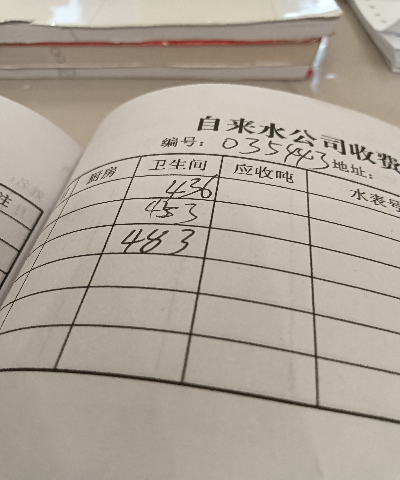 自来水公司收费
编号: 035443 地址:
厨房 卫生间 应收吨 水表号
436
453
483
注